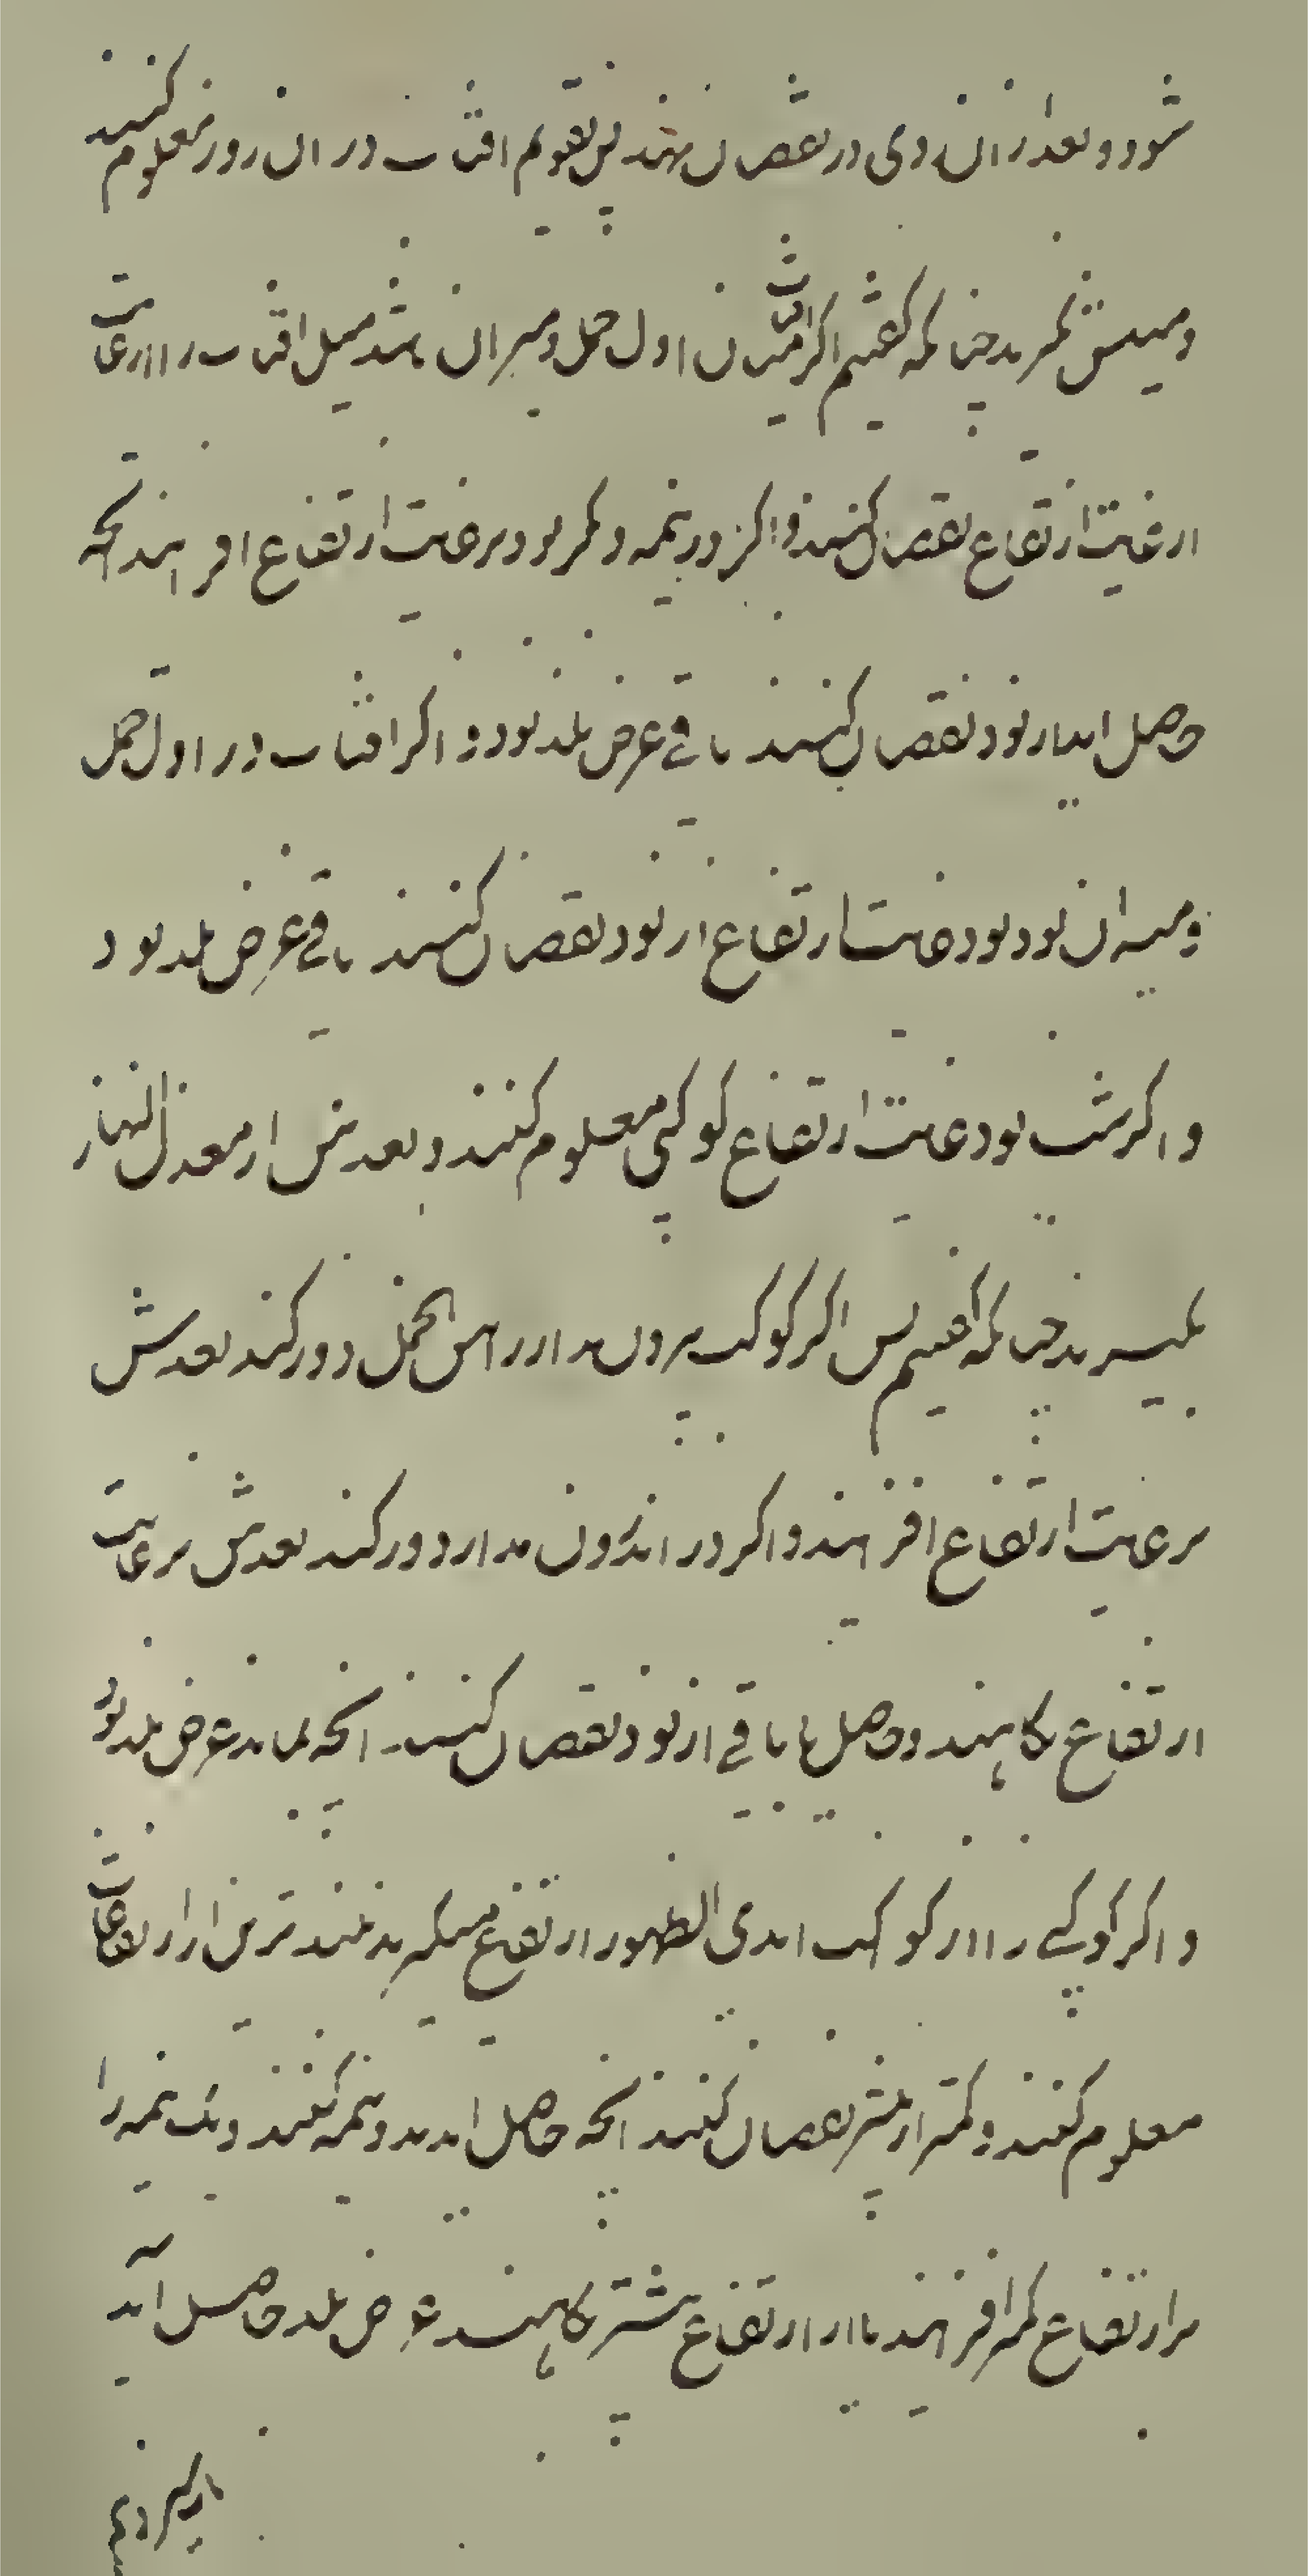 شود و بعد از ان روی در نقصان نهند پس تقویم افتاب در ان روز معلوم کنند
و میلش بگیرند چنانکه گفتیم اگر افتاب میان اول حمل و میزان باشد میل افتاب را از غایت
ارتفاع نقصان کنند و اگر در نیمه دیگر بود بر غایت ارتفاع افزایند انچه
حاصل اید از نود نقصان کنند باقی عرض بلد بود و اگر افتاب در اول حمل
و میزان بود بود غایت ارتفاع از نود نقصان کنند باقی عرض بلد بود
و اگر شب بود غایت ارتفاع کوکبی معلوم کنند و بعدش از معدل النهار
بگیرند چنانکه گفتیم پس اگر کوکب بیرون مدار راس الحمل دور کند بعدش
بر غایت ارتفاع افزایند و اگر در اندرون مدار دور کند بعدش بر غایت
ارتفاع بکاهند و حاصل یا باقی از نود نقصان کنند انچه بماند عرض بلد بود
و اگر کوکبی را از کواکب ابدی الظهور ارتفاع میگیرند بلندترین ارتفاعات
معلوم کنند و کمتر از بیشتر نقصان کنند انچه حاصل اید بدو نیمه کنند و یک نیمه را
بر ارتفاع کمتر افزایند یا از ارتفاع بیشتر بکاهند عرض بلد حاصل آید